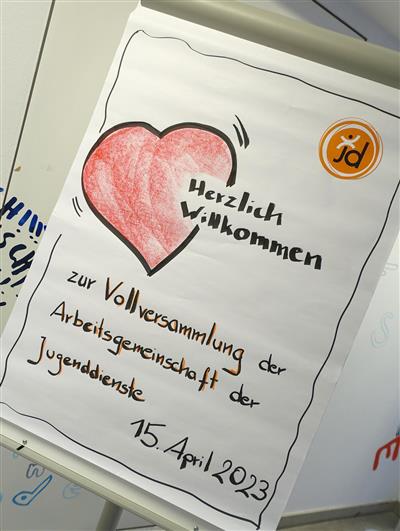 jd
Herzlich
Willkommen
zur Vollversammlung der
Arbeitsgemeinschaft der
Jugenddienste
15. April 2023